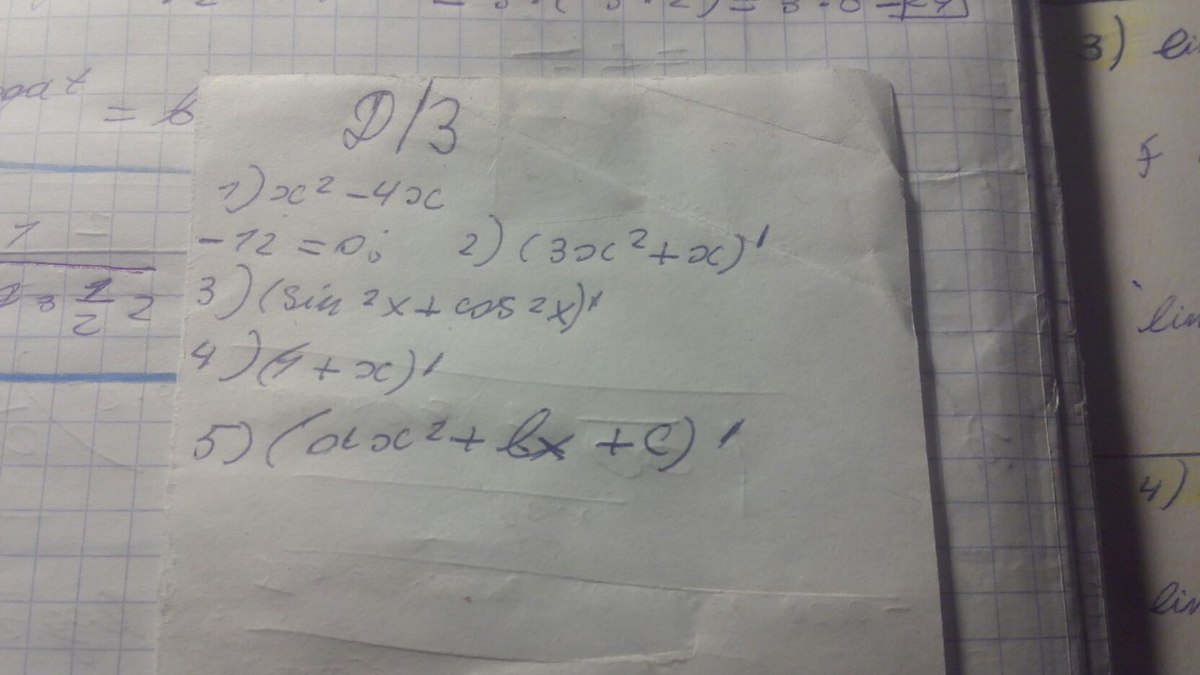 Д/З
1) x² - 4x
- 12 = 0; 2) (3x² + x)'
3) (sin²x + cos²x)'
4) (1 + x)'
5) (ax² + bx + c)'
= b
1
1/2
3)
lim
4)
lim